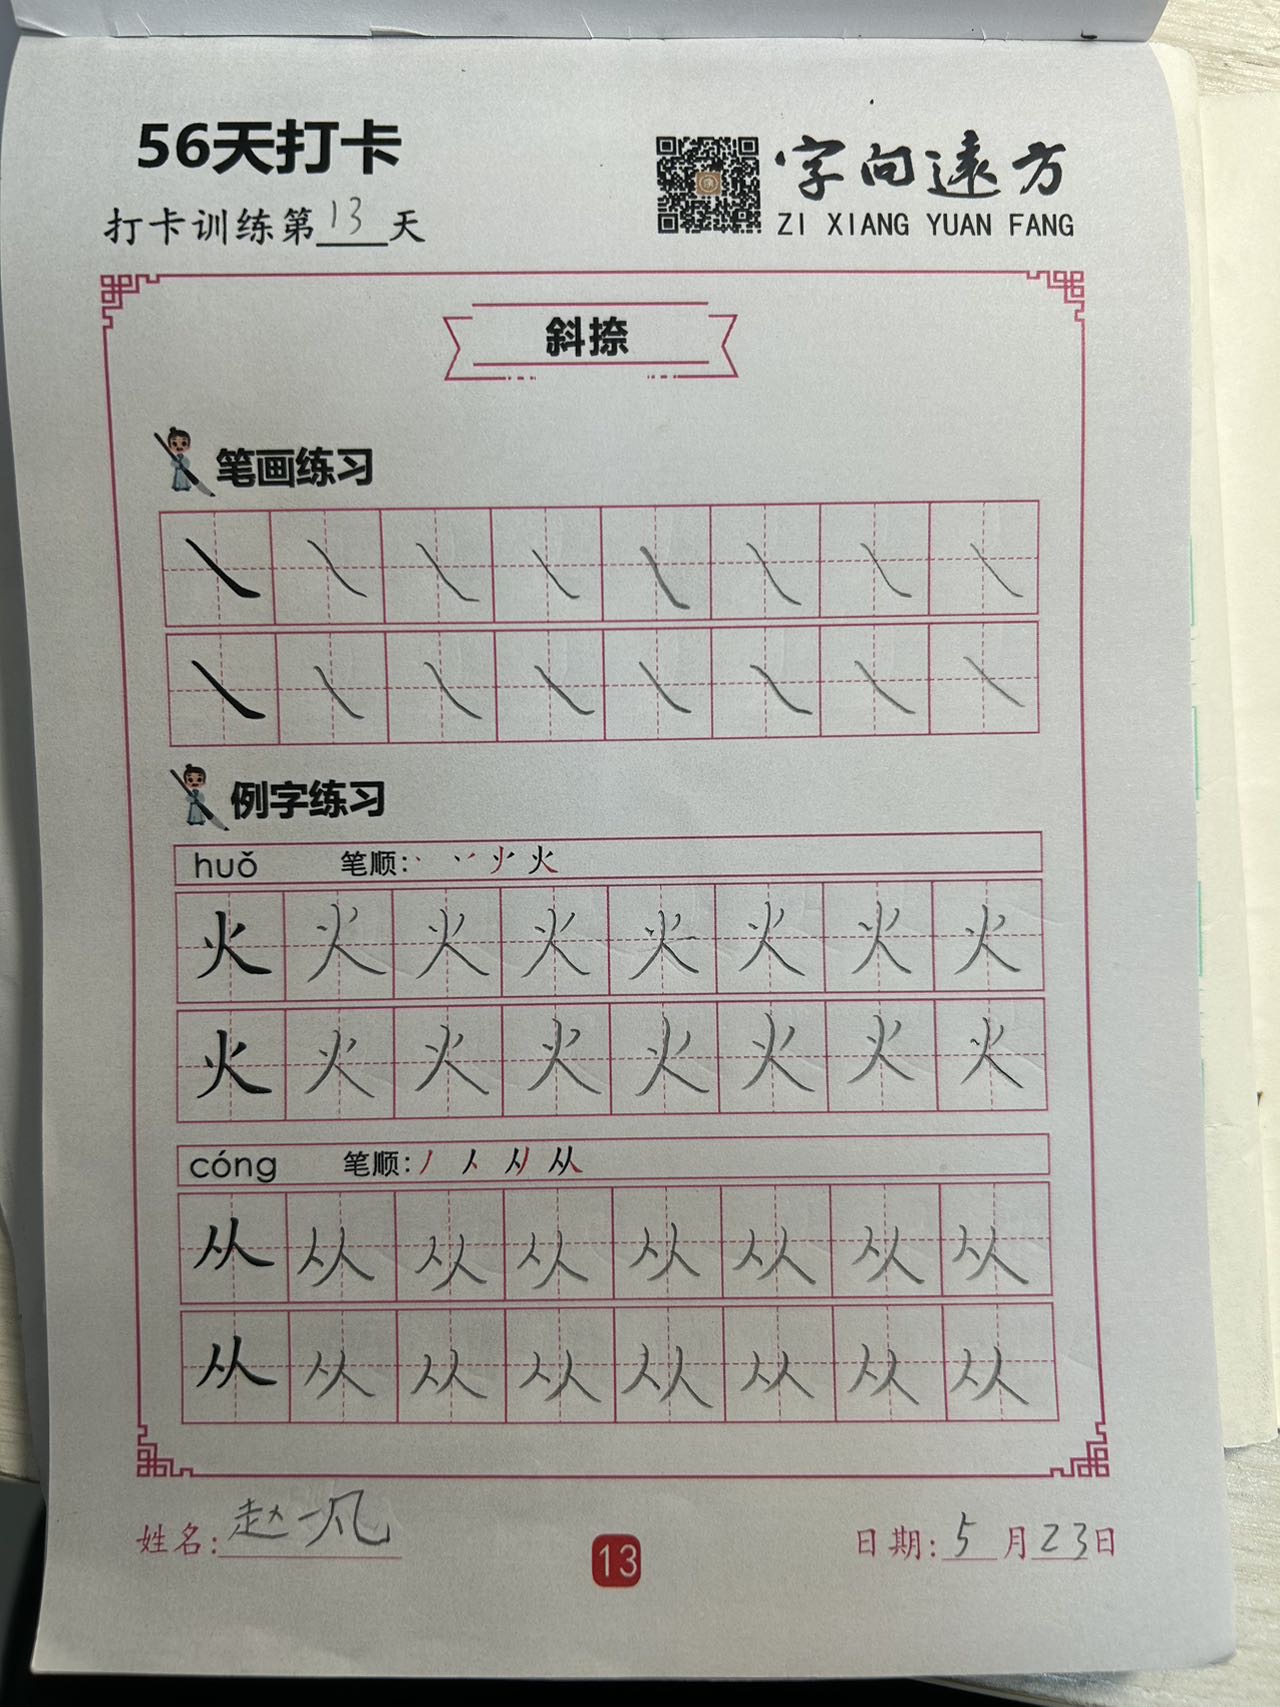 56天打卡
打卡训练第13天
字向遠方
ZI XIANG YUAN FANG
斜捺
笔画练习
例字练习
huǒ 笔顺: 火
火 火 火 火 火 火 火 火
火 火 火 火 火 火 火 火
cóng 笔顺: 丿 人 从
从 从 从 从 从 从 从 从
从 从 从 从 从 从 从 从
姓名: 赵一凡
13
日期: 5月23日